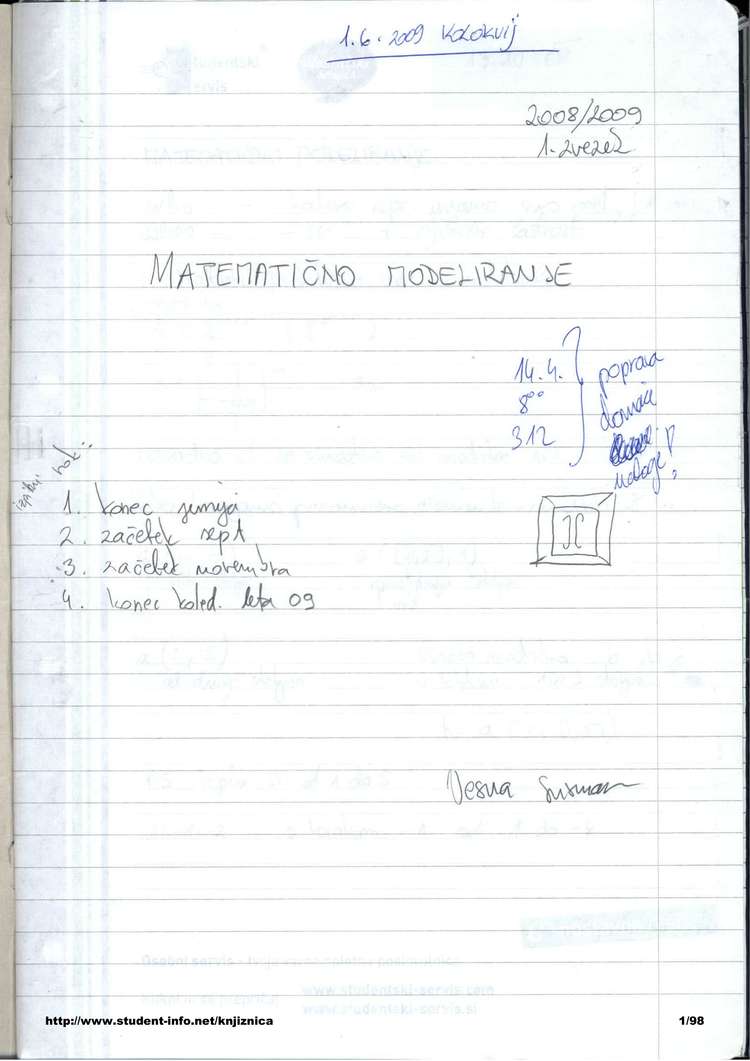 1.6.2009 Kolokvij
2008/2009
1. zvezek
MATEMATIČNO MODELIRANJE
14.4.
8⁰⁰
312
poprava
domače
naloge!
izpitni rok:
1. konec junija
2. začetek sept
3. začetek novembra
4. konec koled. leta 09
Vesna
http://www.student-info.net/knjiznica
1/98